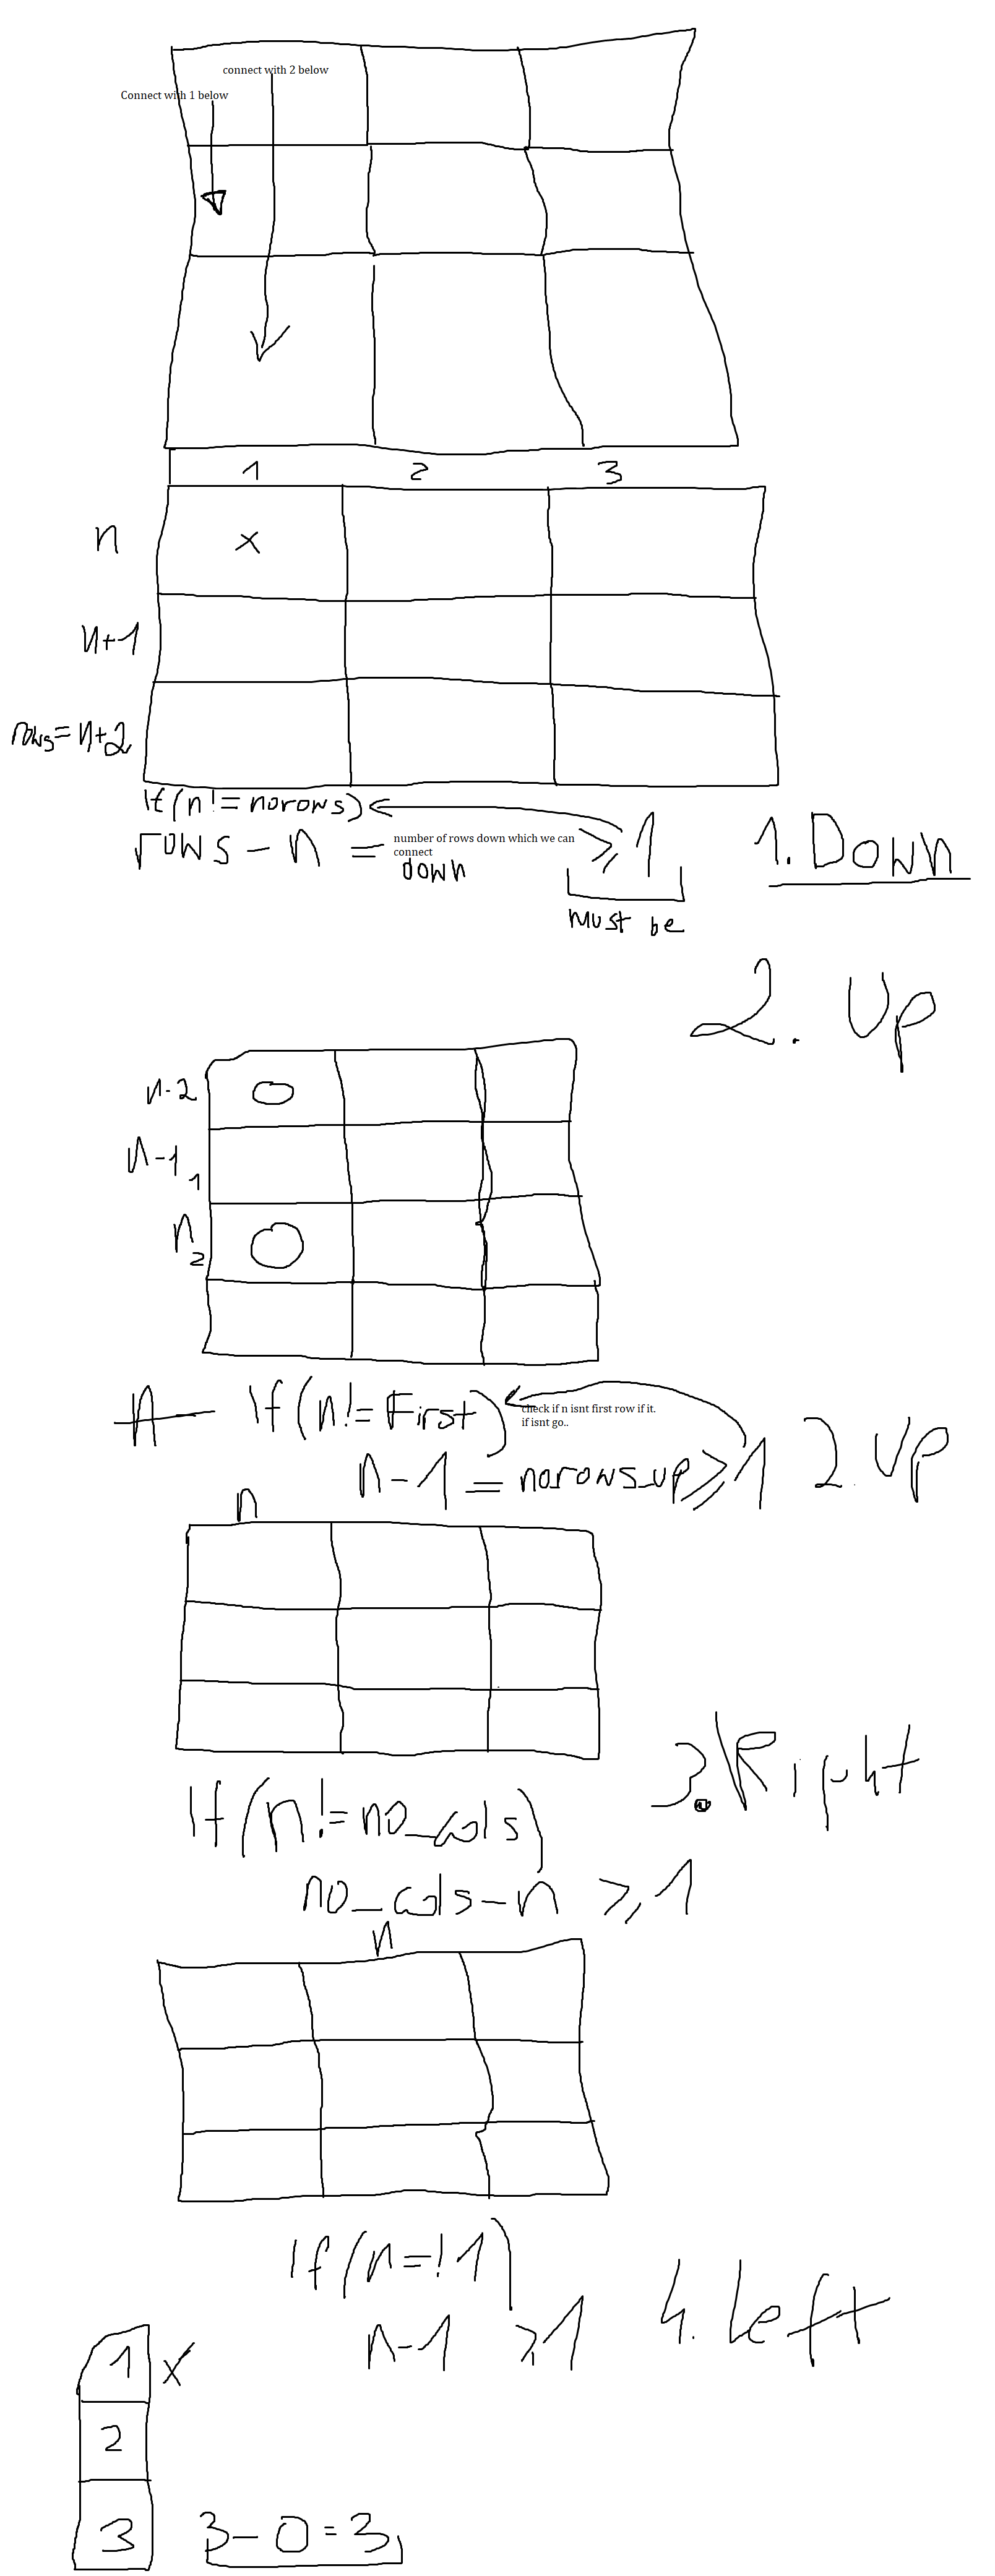 connect with 2 below
Connect with 1 below
1 2 3
n x
n+1
rows=n+2
If(n!=norows)
rows - n = number of rows down which we can connect down ⩾1
must be
1. Down
2. Up
n-2
n-1 1
n 2
n - If(n!=First)
check if n isnt first row if it.
if isnt go..
n-1 = norows_up⩾1
2. Up
n
3. Right
If(n!=no_cols)
no_cols-n ⩾1
n
If(n=!1)
n-1 ⩾1
4. Left
1 x
2
3
3-0=3